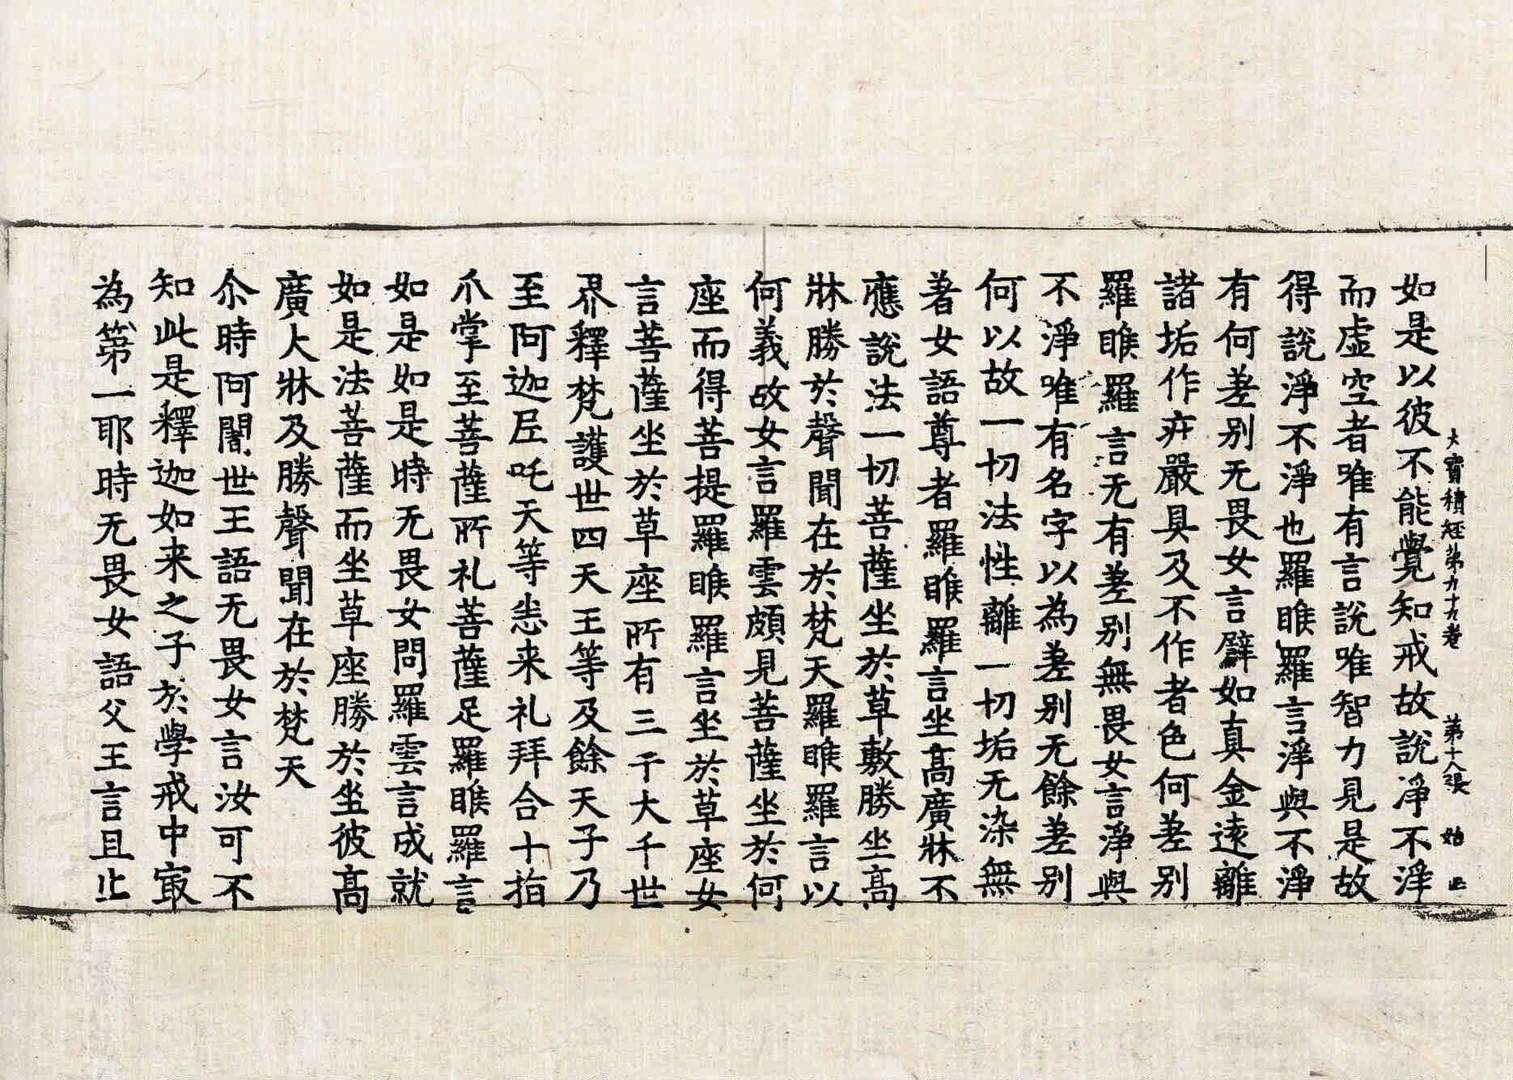 大寶積經第九十九卷 第十八張 始
如是以彼不能覺知戒故說淨不淨
而虛空者唯有言說唯智力見是故
得說淨不淨也羅睺羅言淨與不淨
有何差別无畏女言譬如真金遠離
諸垢作莊嚴具及不作者色何差別
羅睺羅言无有差別無畏女言淨與
不淨唯有名字以為差別无餘差別
何以故一切法性離一切垢无染無
著女語尊者羅睺羅言坐高廣牀不
應說法一切菩薩坐於草敷勝坐高
牀勝於聲聞在於梵天羅睺羅言以
何義故女言羅雲頗見菩薩坐於何
座而得菩提羅睺羅言坐於草座女
言菩薩坐於草座所有三千大千世
界釋梵護世四天王等及餘天子乃
至阿迦尼吒天等悉来礼拜合十指
爪掌至菩薩所礼菩薩足羅睺羅言
如是如是時无畏女問羅雲言成就
如是法菩薩而坐草座勝於坐彼高
廣大牀及勝聲聞在於梵天
尒時阿闍世王語无畏女言汝可不
知此是釋迦如来之子於學戒中冣
為第一耶時无畏女語父王言且止